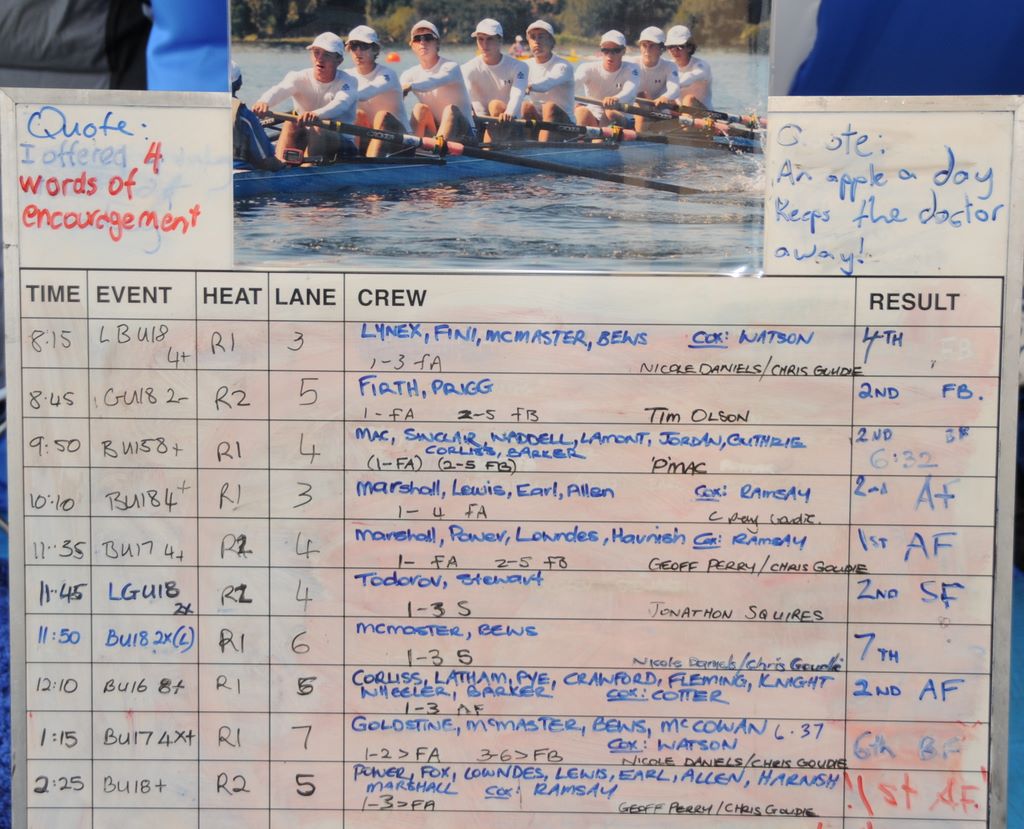 Quote:
I offered 4
words of
encouragement
Quote:
An apple a day
Keeps the doctor
away!
TIME EVENT HEAT LANE CREW RESULT
8:15 LBU18 4+ R1 3 LYNEX, FINI, MCMASTER, BEWS COX: WATSON 4TH FB
1-3 FA NICOLE DANIELS/CHRIS GOUDIE
8:45 GU18 2- R2 5 FIRTH, PRIGG 2ND FB.
1-FA 2-5 FB TIM OLSON
9:50 BU158+ R1 4 MAC, SINCLAIR, WADDELL, LAMONT, JORDAN, GUTHRIE 2ND
CORLISS, BARKER 6:32
(1-FA) (2-5 FB) 'P'MAC
10:10 BU184+ R1 3 Marshall, Lewis, Earl, Allen COX: RAMSAY 2nd AF
1-4 FA
11:35 BU17 4+ R1 4 Marshall, Power, Lowndes, Harnish Cox: RAMSAY 1st AF
1-FA 2-5 FB GEOFF PERRY/CHRIS GOUDIE
11:45 LGU18 2x R1 4 Todorov, Stewart 2ND SF
1-3 S JONATHON SQUIRES
11:50 BU18 2x(L) R1 6 MCMASTER, BEWS 7TH
1-3 S Nicole Daniels/Chris Goudie
12:10 BU16 8+ R1 5 CORLISS, LATHAM, PYE, CRAWFORD, FLEMING, KNIGHT 2ND AF
WHEELER, BARKER COX: COTTER
1-3 AF
1:15 BU17 4x+ R1 7 GOLDSTINE, MCMASTER, BEWS, MCCOWAN 6.37 6th BF
COX: WATSON
1-2>FA 3-6>FB NICOLE DANIELS/CHRIS GOUDIE
2:25 BU18+ R2 5 POWER, FOX, LOWNDES, LEWIS, EARL, ALLEN, HARNISH 1st AF.
MARSHALL COX: RAMSAY
1-3>FA GEOFF PERRY/CHRIS GOUDIE